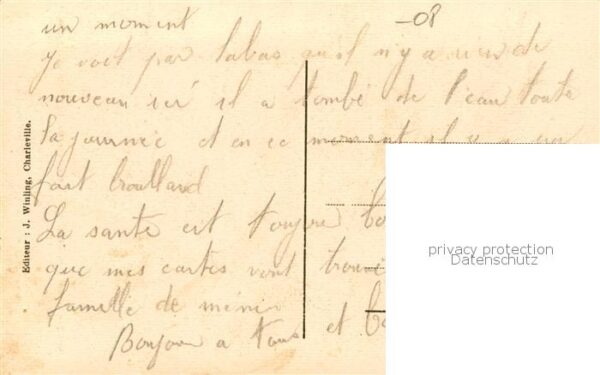 -08
un moment
je voit par labas qu'il n'y a rien de
nouveau ici il a tombé de l'eau toute
la journée et en ce moment il y a un
fort brouillard
La santé est toujour
que mes cartes vont trouvé
famille de méme
Bonjour a tous et
Editeur : J. Winling, Charleville.
privacy protection
Datenschutz